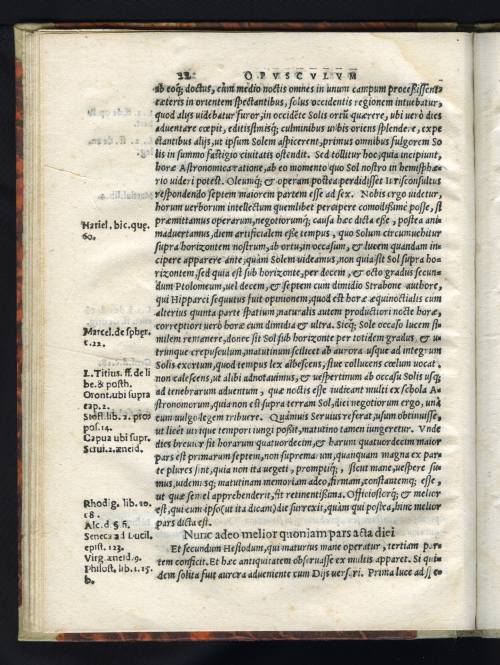 22 OPVSCVLVM
ab eoq; doctus, cùm medio noctis omnes in unum campum processissent
cæteris in orientem spectantibus, solus occidentis regionem intuebatur,
quod alijs uidebatur furor, in occidẽte Solis ortũ quærere, ubi uerò dies
aduentare cœpit, editissimisq; culminibus urbis oriens splendere, expe
ctantibus alijs, ut ipsum Solem aspicerent, primus omnibus fulgorem So
lis in summo fastigio ciuitatis ostendit. Sed tollitur hoc, quia incipiunt,
horæ Astronomica ratione, ab eo momento quo Sol nostro in hemisphæ
rio uideri potest. Oleumq; & operam postea perdidisset Iurisconsultus
respondendo septem maiorem partem esse ad sex. Nobis ergo uidetur,
horum uerborum intellectum quemlibet percipere comodissimè posse, si
præmittamus operarum, negotiorumq; causa hæc dicta esse, postea ani
maduertamus, diem artificialem esse tempus, quo Solum circumuehitur
supra horizontem nostrum, ab ortu in occasum, & lucem quandam in-
cipere apparere ante, quàm Solem uideamus, non quia sit Sol supra ho-
rizontem, sed quia est sub horizonte, per decem, & octo gradus secun-
dum Ptolomeum, uel decem, & septem cum dimidio Strabone authore,
qui Hipparci sequutus fuit opinionem, quod est horæ æquinoctialis cum
alterius quinta parte spatium, naturalis autem productiori nocte horæ,
correptiori uerò horæ cum dimidia & ultra. Sicq; Sole occaso lucem si-
milem remanere, donec sit Sol sub horizonte per totidem gradus, & u-
trunque crepusculum, matutinum scilicet ab aurora usque ad integrum
Solis exortum, quod tempus lex albescens, siue collucens cœlum uocat,
non calescens, ut alibi adnotauimus, & uespertinum ab occasu Solis usq;
ad tenebrarum aduentum, quæ noctis esse iudicant multi ex schola A-
stronomorum, quia non est supra terram Sol, diei negotiorum ergo, unà
cum uulgo legem tribuere. Quamuis Seruius referat, usum obtinuisse,
ut licet utrique tempori iungi possit, matutino tamen iungeretur. Vnde
dies breuior fit horarum quatuordecim, & harum quatuordecim maior
pars est primarum septem, non supremarum, quanquam magna ex par-
te plures sint, quia non ita uegeti, promptiq;, sicut mane, uespere su-
mus, uidemusq; matutinam memoriam adeo, firmam, constantemq; esse,
ut quæ semel apprehenderit, sit retinentissima. Officiosiorq; & melior
est, qui cum ipso (ut ita dicam) die surrexit, quàm qui postea, hinc melior
pars dicta est.
Nunc adeo melior quoniam pars acta diei
Et secundum Hesiodum, qui maturius mane operatur, tertiam par-
tem conficit. Et hæc antiquitatem obseruasse ex multis apparet. Si qui-
dem solita fuit aurora adueniente cum Dijs uersari. Prima luce ad
Hariel. hic. quæ.
60.
Marcel. de sphær.
c. 22.
L. Titius. ff. de li
be. & posth.
Oront. ubi supra
cap. 2.
Stofl. lib. 2. pro
pos. 14.
Capua ubi supr.
Serui. 2. æneid.
Rhodig. lib. 20.
c 8.
Alc. d §. fi.
Seneca ad Lucil.
epist. 123.
Virg. æneid. 9.
Philost. lib. 1. 15.
b.